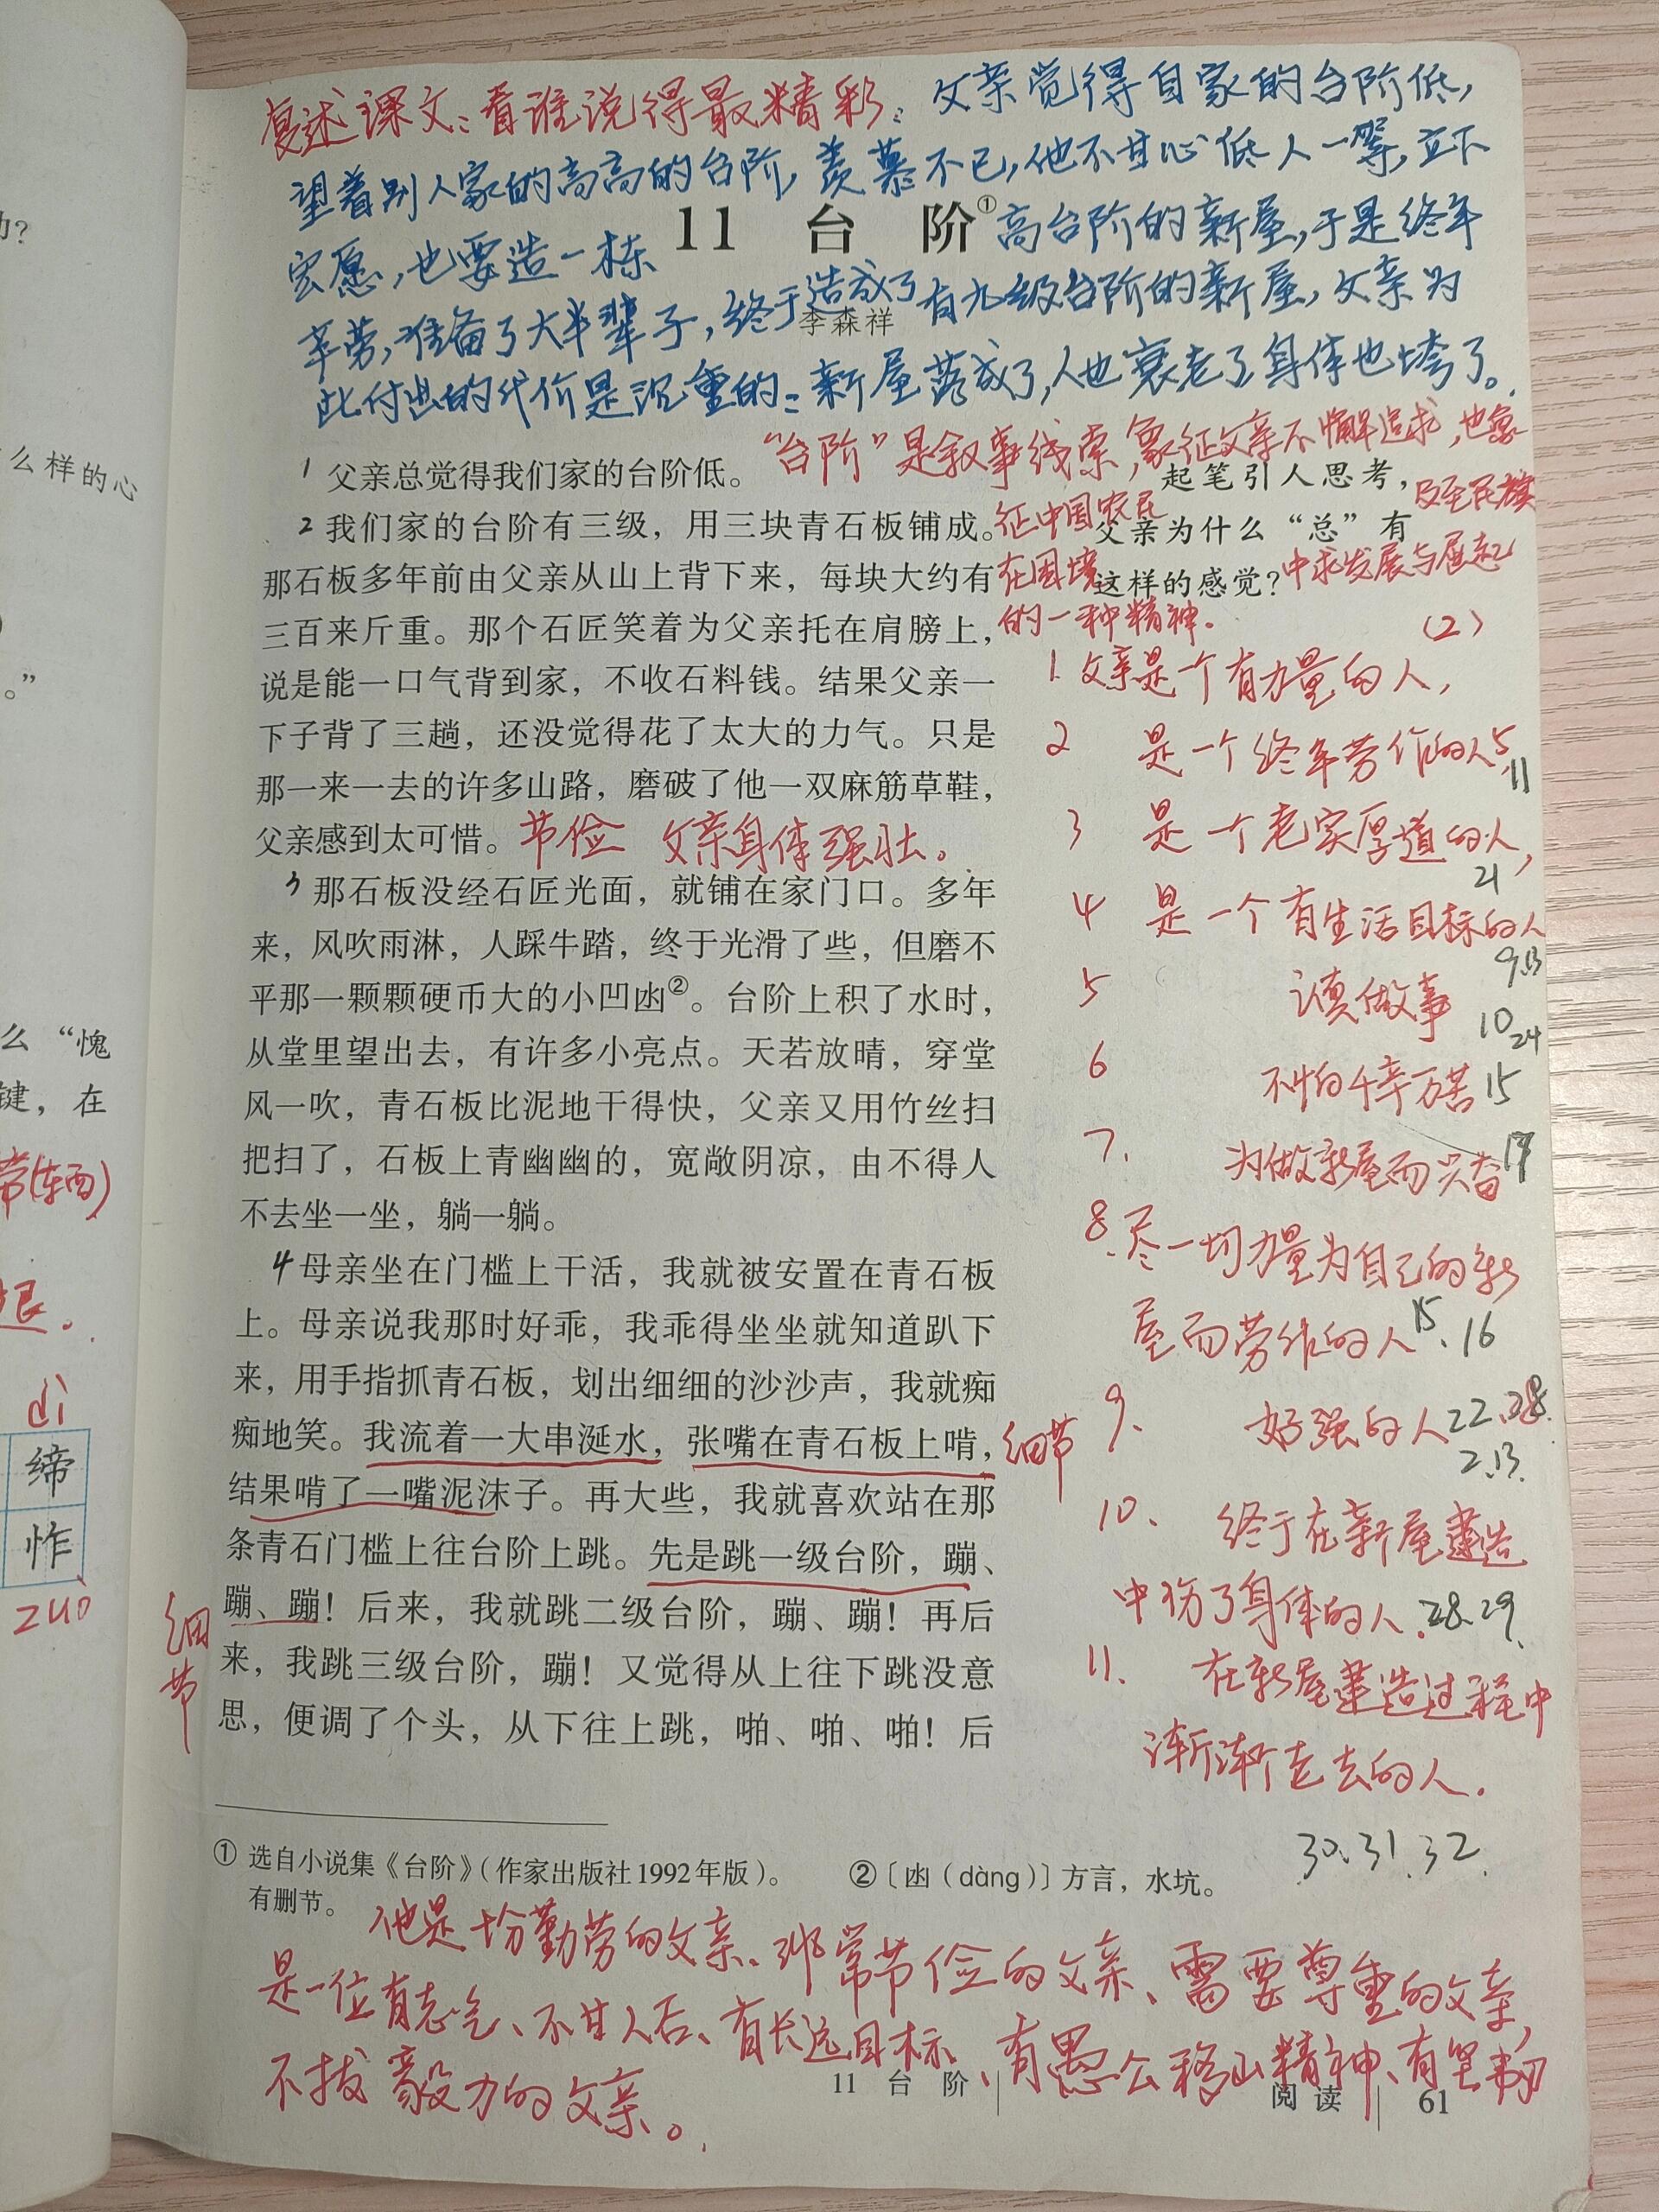 复述课文:看谁说得最精彩:父亲觉得自家的台阶低,
望着别人家的高高的台阶,羡慕不已,他不甘心低人一等,立下
宏愿,也要造一栋 高台阶的新屋,于是终年
辛劳,准备了大半辈子,终于造成了有九级台阶的新屋,父亲为
此付出的代价是沉重的:新屋落成了,人也衰老了身体也垮了。
11 台 阶①
李森祥
“台阶”是叙事线索,象征父亲不懈追求,也象
征中国农民
及至民族
在困境
中求发展与崛起
的一种精神。
1 父亲总觉得我们家的台阶低。
2 我们家的台阶有三级,用三块青石板铺成。
那石板多年前由父亲从山上背下来,每块大约有
三百来斤重。那个石匠笑着为父亲托在肩膀上,
说是能一口气背到家,不收石料钱。结果父亲一
下子背了三趟,还没觉得花了太大的力气。只是
那一来一去的许多山路,磨破了他一双麻筋草鞋,
父亲感到太可惜。节俭 父亲身体强壮。
3 那石板没经石匠光面,就铺在家门口。多年
来,风吹雨淋,人踩牛踏,终于光滑了些,但磨不
平那一颗颗硬币大的小凹凼②。台阶上积了水时,
从堂里望出去,有许多小亮点。天若放晴,穿堂
风一吹,青石板比泥地干得快,父亲又用竹丝扫
把扫了,石板上青幽幽的,宽敞阴凉,由不得人
不去坐一坐,躺一躺。
4 母亲坐在门槛上干活,我就被安置在青石板
上。母亲说我那时好乖,我乖得坐坐就知道趴下
来,用手指抓青石板,划出细细的沙沙声,我就痴
痴地笑。我流着一大串涎水,张嘴在青石板上啃,
结果啃了一嘴泥沫子。再大些,我就喜欢站在那
条青石门槛上往台阶上跳。先是跳一级台阶,蹦、
蹦、蹦!后来,我就跳二级台阶,蹦、蹦!再后
来,我跳三级台阶,蹦!又觉得从上往下跳没意
思,便调了个头,从下往上跳,啪、啪、啪!后
细节
细节
起笔引人思考,
父亲为什么“总”有
这样的感觉?
(2)
1 父亲是一个有力量的人,
2 是一个终年劳作的人 5,11
3 是一个老实厚道的人,
21
4 是一个有生活目标的人
9.13
5 认真做事 10 24
6 不怕千辛万苦 15
7. 为做新屋而兴奋 17
8. 尽一切力量为自己的新
屋而劳作的人 15、16
9、 好强的人 22.28.
2.13.
10、 终于在新屋建造
中伤了身体的人. 28.29.
11. 在新屋建造过程中
渐渐老去的人.
30.31.32.
① 选自小说集《台阶》(作家出版社1992年版)。
有删节。
② 〔凼(dàng)〕方言,水坑。
他是十分勤劳的父亲、非常节俭的父亲、需要尊重的父亲,
是一位有志气、不甘人后、有长远目标、有愚公移山精神、有坚韧
不拔毅力的父亲。
11 台 阶
阅读 61
么样的心
。”
么“愧
键,在
带(东西)
dì
缔
怍
zuò